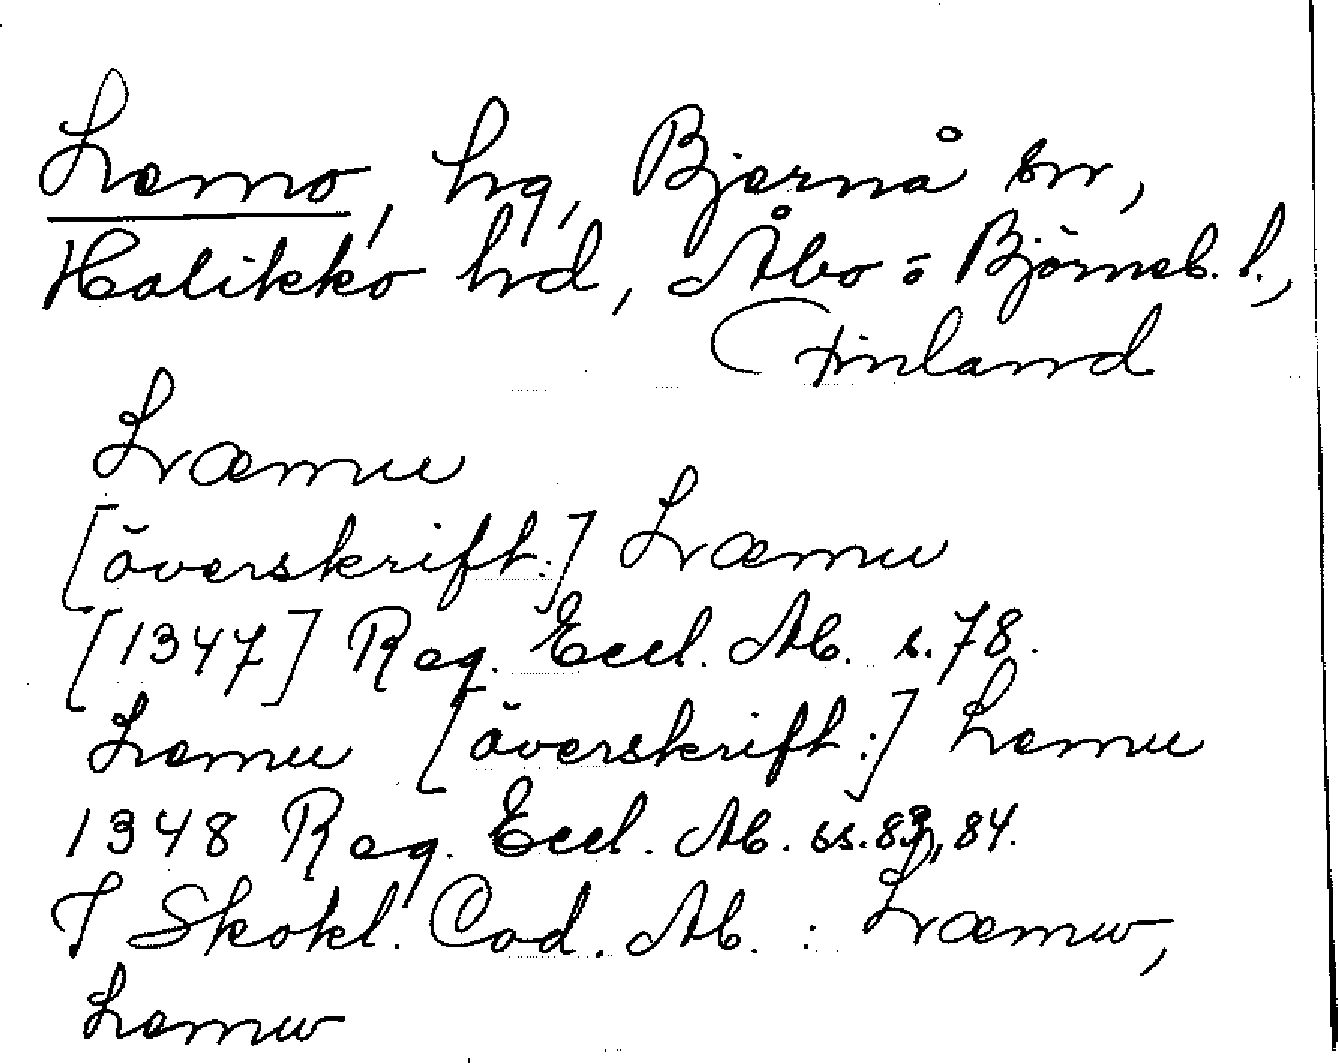 Lemo, hg, Bjärnå sn,
Halikko hd, Åbo o Björneb. l.,
Finland
Læmu
[överskrift:] Læmu
[1347] Reg. Eccl. Ab. s. 78.
Lemu [överskrift:] Lemu
1348 Reg. Eccl. Ab. ss. 83, 84.
I Skokl. Cod. Ab. : Læmw,
Lemw